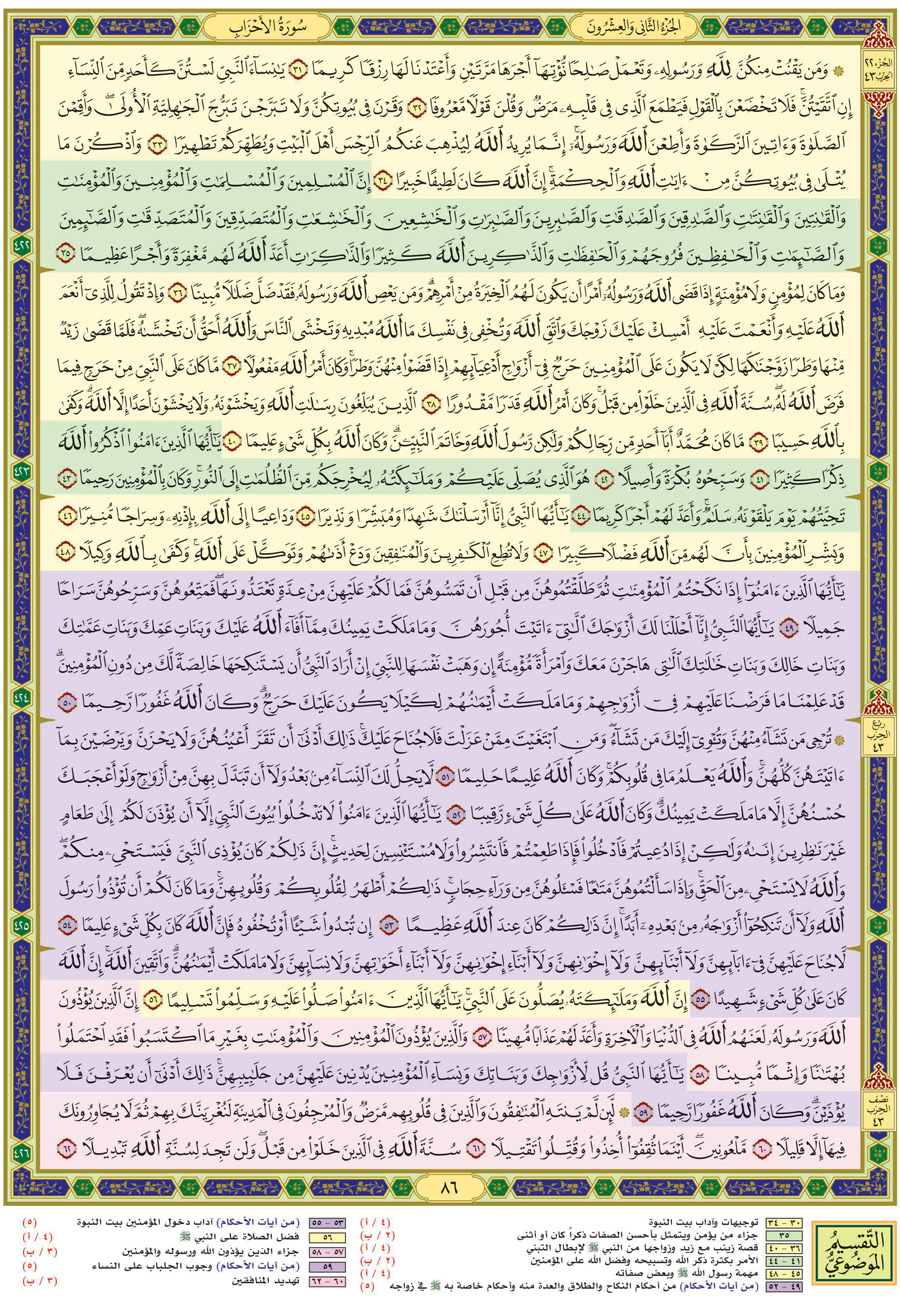 الجُزْءُ الثَّانِي وَالعِشْرُونَ
سُورَةُ الأَحْزَابِ
الجُزء ٢٢
الحِزب ٤٣
۞ وَمَن يَقْنُتْ مِنكُنَّ لِلَّهِ وَرَسُولِهِۦ وَتَعْمَلْ صَٰلِحًا نُّؤْتِهَآ أَجْرَهَا مَرَّتَيْنِ وَأَعْتَدْنَا لَهَا رِزْقًا كَرِيمًا ٣١ يَٰنِسَآءَ ٱلنَّبِيِّ لَسْتُنَّ كَأَحَدٍ مِّنَ ٱلنِّسَآءِ
إِنِ ٱتَّقَيْتُنَّ ۚ فَلَا تَخْضَعْنَ بِٱلْقَوْلِ فَيَطْمَعَ ٱلَّذِى فِى قَلْبِهِۦ مَرَضٌ وَقُلْنَ قَوْلًا مَّعْرُوفًا ٣٢ وَقَرْنَ فِى بُيُوتِكُنَّ وَلَا تَبَرَّجْنَ تَبَرُّجَ ٱلْجَٰهِلِيَّةِ ٱلْأُولَىٰ ۖ وَأَقِمْنَ
ٱلصَّلَوٰةَ وَءَاتِينَ ٱلزَّكَوٰةَ وَأَطِعْنَ ٱللَّهَ وَرَسُولَهُۥٓ ۚ إِنَّمَا يُرِيدُ ٱللَّهُ لِيُذْهِبَ عَنكُمُ ٱلرِّجْسَ أَهْلَ ٱلْبَيْتِ وَيُطَهِّرَكُمْ تَطْهِيرًا ٣٣ وَٱذْكُرْنَ مَا
يُتْلَىٰ فِى بُيُوتِكُنَّ مِنْ ءَايَٰتِ ٱللَّهِ وَٱلْحِكْمَةِ ۚ إِنَّ ٱللَّهَ كَانَ لَطِيفًا خَبِيرًا ٣٤ إِنَّ ٱلْمُسْلِمِينَ وَٱلْمُسْلِمَٰتِ وَٱلْمُؤْمِنِينَ وَٱلْمُؤْمِنَٰتِ
وَٱلْقَٰنِتِينَ وَٱلْقَٰنِتَٰتِ وَٱلصَّٰدِقِينَ وَٱلصَّٰدِقَٰتِ وَٱلصَّٰبِرِينَ وَٱلصَّٰبِرَٰتِ وَٱلْخَٰشِعِينَ وَٱلْخَٰشِعَٰتِ وَٱلْمُتَصَدِّقِينَ وَٱلْمُتَصَدِّقَٰتِ وَٱلصَّٰٓئِمِينَ
٤٢٢
وَٱلصَّٰٓئِمَٰتِ وَٱلْحَٰفِظِينَ فُرُوجَهُمْ وَٱلْحَٰفِظَٰتِ وَٱلذَّٰكِرِينَ ٱللَّهَ كَثِيرًا وَٱلذَّٰكِرَٰتِ أَعَدَّ ٱللَّهُ لَهُم مَّغْفِرَةً وَأَجْرًا عَظِيمًا ٣٥
وَمَا كَانَ لِمُؤْمِنٍ وَلَا مُؤْمِنَةٍ إِذَا قَضَى ٱللَّهُ وَرَسُولُهُۥٓ أَمْرًا أَن يَكُونَ لَهُمُ ٱلْخِيَرَةُ مِنْ أَمْرِهِمْ ۗ وَمَن يَعْصِ ٱللَّهَ وَرَسُولَهُۥ فَقَدْ ضَلَّ ضَلَٰلًا مُّبِينًا ٣٦ وَإِذْ تَقُولُ لِلَّذِىٓ أَنْعَمَ
ٱللَّهُ عَلَيْهِ وَأَنْعَمْتَ عَلَيْهِ أَمْسِكْ عَلَيْكَ زَوْجَكَ وَٱتَّقِ ٱللَّهَ وَتُخْفِى فِى نَفْسِكَ مَا ٱللَّهُ مُبْدِيهِ وَتَخْشَى ٱلنَّاسَ وَٱللَّهُ أَحَقُّ أَن تَخْشَىٰهُ ۖ فَلَمَّا قَضَىٰ زَيْدٌ
مِّنْهَا وَطَرًا زَوَّجْنَٰكَهَا لِكَىْ لَا يَكُونَ عَلَى ٱلْمُؤْمِنِينَ حَرَجٌ فِىٓ أَزْوَٰجِ أَدْعِيَآئِهِمْ إِذَا قَضَوْا۟ مِنْهُنَّ وَطَرًا ۚ وَكَانَ أَمْرُ ٱللَّهِ مَفْعُولًا ٣٧ مَّا كَانَ عَلَى ٱلنَّبِىِّ مِنْ حَرَجٍ فِيمَا
فَرَضَ ٱللَّهُ لَهُۥ ۖ سُنَّةَ ٱللَّهِ فِى ٱلَّذِينَ خَلَوْا۟ مِن قَبْلُ ۚ وَكَانَ أَمْرُ ٱللَّهِ قَدَرًا مَّقْدُورًا ٣٨ ٱلَّذِينَ يُبَلِّغُونَ رِسَٰلَٰتِ ٱللَّهِ وَيَخْشَوْنَهُۥ وَلَا يَخْشَوْنَ أَحَدًا إِلَّا ٱللَّهَ ۗ وَكَفَىٰ
بِٱللَّهِ حَسِيبًا ٣٩ مَّا كَانَ مُحَمَّدٌ أَبَآ أَحَدٍ مِّن رِّجَالِكُمْ وَلَٰكِن رَّسُولَ ٱللَّهِ وَخَاتَمَ ٱلنَّبِيِّـۧنَ ۗ وَكَانَ ٱللَّهُ بِكُلِّ شَىْءٍ عَلِيمًا ٤٠ يَٰٓأَيُّهَا ٱلَّذِينَ ءَامَنُوا۟ ٱذْكُرُوا۟ ٱللَّهَ
٤٢٣
ذِكْرًا كَثِيرًا ٤١ وَسَبِّحُوهُ بُكْرَةً وَأَصِيلًا ٤٢ هُوَ ٱلَّذِى يُصَلِّى عَلَيْكُمْ وَمَلَٰٓئِكَتُهُۥ لِيُخْرِجَكُم مِّنَ ٱلظُّلُمَٰتِ إِلَى ٱلنُّورِ ۚ وَكَانَ بِٱلْمُؤْمِنِينَ رَحِيمًا ٤٣
تَحِيَّتُهُمْ يَوْمَ يَلْقَوْنَهُۥ سَلَٰمٌ ۚ وَأَعَدَّ لَهُمْ أَجْرًا كَرِيمًا ٤٤ يَٰٓأَيُّهَا ٱلنَّبِىُّ إِنَّآ أَرْسَلْنَٰكَ شَٰهِدًا وَمُبَشِّرًا وَنَذِيرًا ٤٥ وَدَاعِيًا إِلَى ٱللَّهِ بِإِذْنِهِۦ وَسِرَاجًا مُّنِيرًا ٤٦
وَبَشِّرِ ٱلْمُؤْمِنِينَ بِأَنَّ لَهُم مِّنَ ٱللَّهِ فَضْلًا كَبِيرًا ٤٧ وَلَا تُطِعِ ٱلْكَٰفِرِينَ وَٱلْمُنَٰفِقِينَ وَدَعْ أَذَىٰهُمْ وَتَوَكَّلْ عَلَى ٱللَّهِ ۚ وَكَفَىٰ بِٱللَّهِ وَكِيلًا ٤٨
يَٰٓأَيُّهَا ٱلَّذِينَ ءَامَنُوٓا۟ إِذَا نَكَحْتُمُ ٱلْمُؤْمِنَٰتِ ثُمَّ طَلَّقْتُمُوهُنَّ مِن قَبْلِ أَن تَمَسُّوهُنَّ فَمَا لَكُمْ عَلَيْهِنَّ مِنْ عِدَّةٍ تَعْتَدُّونَهَا ۖ فَمَتِّعُوهُنَّ وَسَرِّحُوهُنَّ سَرَاحًا
جَمِيلًا ٤٩ يَٰٓأَيُّهَا ٱلنَّبِىُّ إِنَّآ أَحْلَلْنَا لَكَ أَزْوَٰجَكَ ٱلَّٰتِىٓ ءَاتَيْتَ أُجُورَهُنَّ وَمَا مَلَكَتْ يَمِينُكَ مِمَّآ أَفَآءَ ٱللَّهُ عَلَيْكَ وَبَنَاتِ عَمِّكَ وَبَنَاتِ عَمَّٰتِكَ
وَبَنَاتِ خَالِكَ وَبَنَاتِ خَٰلَٰتِكَ ٱلَّٰتِى هَاجَرْنَ مَعَكَ وَٱمْرَأَةً مُّؤْمِنَةً إِن وَهَبَتْ نَفْسَهَا لِلنَّبِىِّ إِنْ أَرَادَ ٱلنَّبِىُّ أَن يَسْتَنكِحَهَا خَالِصَةً لَّكَ مِن دُونِ ٱلْمُؤْمِنِينَ ۗ
٤٢٤
قَدْ عَلِمْنَا مَا فَرَضْنَا عَلَيْهِمْ فِىٓ أَزْوَٰجِهِمْ وَمَا مَلَكَتْ أَيْمَٰنُهُمْ لِكَيْلَا يَكُونَ عَلَيْكَ حَرَجٌ ۗ وَكَانَ ٱللَّهُ غَفُورًا رَّحِيمًا ٥٠
رُبع
الحِزب
٤٣
۞ تُرْجِى مَن تَشَآءُ مِنْهُنَّ وَتُـْٔوِىٓ إِلَيْكَ مَن تَشَآءُ ۖ وَمَنِ ٱبْتَغَيْتَ مِمَّنْ عَزَلْتَ فَلَا جُنَاحَ عَلَيْكَ ۚ ذَٰلِكَ أَدْنَىٰٓ أَن تَقَرَّ أَعْيُنُهُنَّ وَلَا يَحْزَنَّ وَيَرْضَيْنَ بِمَآ
ءَاتَيْتَهُنَّ كُلُّهُنَّ ۚ وَٱللَّهُ يَعْلَمُ مَا فِى قُلُوبِكُمْ ۚ وَكَانَ ٱللَّهُ عَلِيمًا حَلِيمًا ٥١ لَّا يَحِلُّ لَكَ ٱلنِّسَآءُ مِنۢ بَعْدُ وَلَآ أَن تَبَدَّلَ بِهِنَّ مِنْ أَزْوَٰجٍ وَلَوْ أَعْجَبَكَ
حُسْنُهُنَّ إِلَّا مَا مَلَكَتْ يَمِينُكَ ۗ وَكَانَ ٱللَّهُ عَلَىٰ كُلِّ شَىْءٍ رَّقِيبًا ٥٢ يَٰٓأَيُّهَا ٱلَّذِينَ ءَامَنُوا۟ لَا تَدْخُلُوا۟ بُيُوتَ ٱلنَّبِىِّ إِلَّآ أَن يُؤْذَنَ لَكُمْ إِلَىٰ طَعَامٍ
غَيْرَ نَٰظِرِينَ إِنَىٰهُ وَلَٰكِنْ إِذَا دُعِيتُمْ فَٱدْخُلُوا۟ فَإِذَا طَعِمْتُمْ فَٱنتَشِرُوا۟ وَلَا مُسْتَـْٔنِسِينَ لِحَدِيثٍ ۚ إِنَّ ذَٰلِكُمْ كَانَ يُؤْذِى ٱلنَّبِىَّ فَيَسْتَحْىِۦ مِنكُمْ ۖ
وَٱللَّهُ لَا يَسْتَحْىِۦ مِنَ ٱلْحَقِّ ۚ وَإِذَا سَأَلْتُمُوهُنَّ مَتَٰعًا فَسْـَٔلُوهُنَّ مِن وَرَآءِ حِجَابٍ ۚ ذَٰلِكُمْ أَطْهَرُ لِقُلُوبِكُمْ وَقُلُوبِهِنَّ ۚ وَمَا كَانَ لَكُمْ أَن تُؤْذُوا۟ رَسُولَ
٤٢٥
ٱللَّهِ وَلَآ أَن تَنكِحُوٓا۟ أَزْوَٰجَهُۥ مِنۢ بَعْدِهِۦٓ أَبَدًا ۚ إِنَّ ذَٰلِكُمْ كَانَ عِندَ ٱللَّهِ عَظِيمًا ٥٣ إِن تُبْدُوا۟ شَيْـًٔا أَوْ تُخْفُوهُ فَإِنَّ ٱللَّهَ كَانَ بِكُلِّ شَىْءٍ عَلِيمًا ٥٤
لَّا جُنَاحَ عَلَيْهِنَّ فِىٓ ءَابَآئِهِنَّ وَلَآ أَبْنَآئِهِنَّ وَلَآ إِخْوَٰنِهِنَّ وَلَآ أَبْنَآءِ إِخْوَٰنِهِنَّ وَلَآ أَبْنَآءِ أَخَوَٰتِهِنَّ وَلَا نِسَآئِهِنَّ وَلَا مَا مَلَكَتْ أَيْمَٰنُهُنَّ ۗ وَٱتَّقِينَ ٱللَّهَ ۚ إِنَّ ٱللَّهَ
كَانَ عَلَىٰ كُلِّ شَىْءٍ شَهِيدًا ٥٥ إِنَّ ٱللَّهَ وَمَلَٰٓئِكَتَهُۥ يُصَلُّونَ عَلَى ٱلنَّبِىِّ ۚ يَٰٓأَيُّهَا ٱلَّذِينَ ءَامَنُوا۟ صَلُّوا۟ عَلَيْهِ وَسَلِّمُوا۟ تَسْلِيمًا ٥٦ إِنَّ ٱلَّذِينَ يُؤْذُونَ
ٱللَّهَ وَرَسُولَهُۥ لَعَنَهُمُ ٱللَّهُ فِى ٱلدُّنْيَا وَٱلْـَٔاخِرَةِ وَأَعَدَّ لَهُمْ عَذَابًا مُّهِينًا ٥٧ وَٱلَّذِينَ يُؤْذُونَ ٱلْمُؤْمِنِينَ وَٱلْمُؤْمِنَٰتِ بِغَيْرِ مَا ٱكْتَسَبُوا۟ فَقَدِ ٱحْتَمَلُوا۟
بُهْتَٰنًا وَإِثْمًا مُّبِينًا ٥٨ يَٰٓأَيُّهَا ٱلنَّبِىُّ قُل لِّأَزْوَٰجِكَ وَبَنَاتِكَ وَنِسَآءِ ٱلْمُؤْمِنِينَ يُدْنِينَ عَلَيْهِنَّ مِن جَلَٰبِيبِهِنَّ ۚ ذَٰلِكَ أَدْنَىٰٓ أَن يُعْرَفْنَ فَلَا
نصف
الحِزب
٤٣
يُؤْذَيْنَ ۗ وَكَانَ ٱللَّهُ غَفُورًا رَّحِيمًا ٥٩ ۞ لَّئِن لَّمْ يَنتَهِ ٱلْمُنَٰفِقُونَ وَٱلَّذِينَ فِى قُلُوبِهِم مَّرَضٌ وَٱلْمُرْجِفُونَ فِى ٱلْمَدِينَةِ لَنُغْرِيَنَّكَ بِهِمْ ثُمَّ لَا يُجَاوِرُونَكَ
٤٢٦
فِيهَآ إِلَّا قَلِيلًا ٦٠ مَّلْعُونِينَ ۖ أَيْنَمَا ثُقِفُوٓا۟ أُخِذُوا۟ وَقُتِّلُوا۟ تَقْتِيلًا ٦١ سُنَّةَ ٱللَّهِ فِى ٱلَّذِينَ خَلَوْا۟ مِن قَبْلُ ۖ وَلَن تَجِدَ لِسُنَّةِ ٱللَّهِ تَبْدِيلًا ٦٢
٨٦
التَّقسِيمُ
المَوضُوعِيُّ
٣٠ - ٣٤ توجيهات وآداب بيت النبوة (٤ / أ)
٣٥ جزاء من يؤمن ويتمثل بأحسن الصفات ذكراً كان أو أنثى (٢ / ب)
٣٦ - ٤٠ قصة زينب مع زيد وزواجها من النبي ﷺ لإبطال التبني (٤ / أ)
٤١ - ٤٤ الأمر بكثرة ذكر الله وتسبيحه وفضل الله على المؤمنين (٢ / ب)
٤٥ - ٤٨ مهمة رسول الله ﷺ وبعض صفاته (٤ / أ)
٤٩ - ٥٢ (من آيات الأحكام) من أحكام النكاح والطلاق والعدة منه وأحكام خاصة به ﷺ في زواجه (٥)
٥٣ - ٥٥ (من آيات الأحكام) آداب دخول المؤمنين بيت النبوة (٥)
٥٦ فضل الصلاة على النبي ﷺ (٤ / أ)
٥٧ - ٥٨ جزاء الذين يؤذون الله ورسوله والمؤمنين (٣ / ب)
٥٩ (من آيات الأحكام) وجوب الجلباب على النساء (٥)
٦٠ - ٦٢ تهديد المنافقين (٣ / ب)